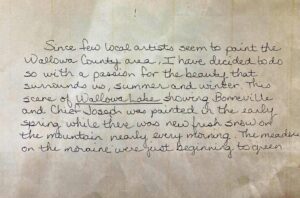 Since few local artists seem to paint the
Wallowa County area, I have decided to do
so with a passion for the beauty that
surrounds us, summer and winter. This
scene of Wallowa Lake showing Bonneville
and Chief Joseph was painted in the early
spring while there was new fresh snow on
the mountain nearly every morning. The meadows
on the moraine were just beginning to green